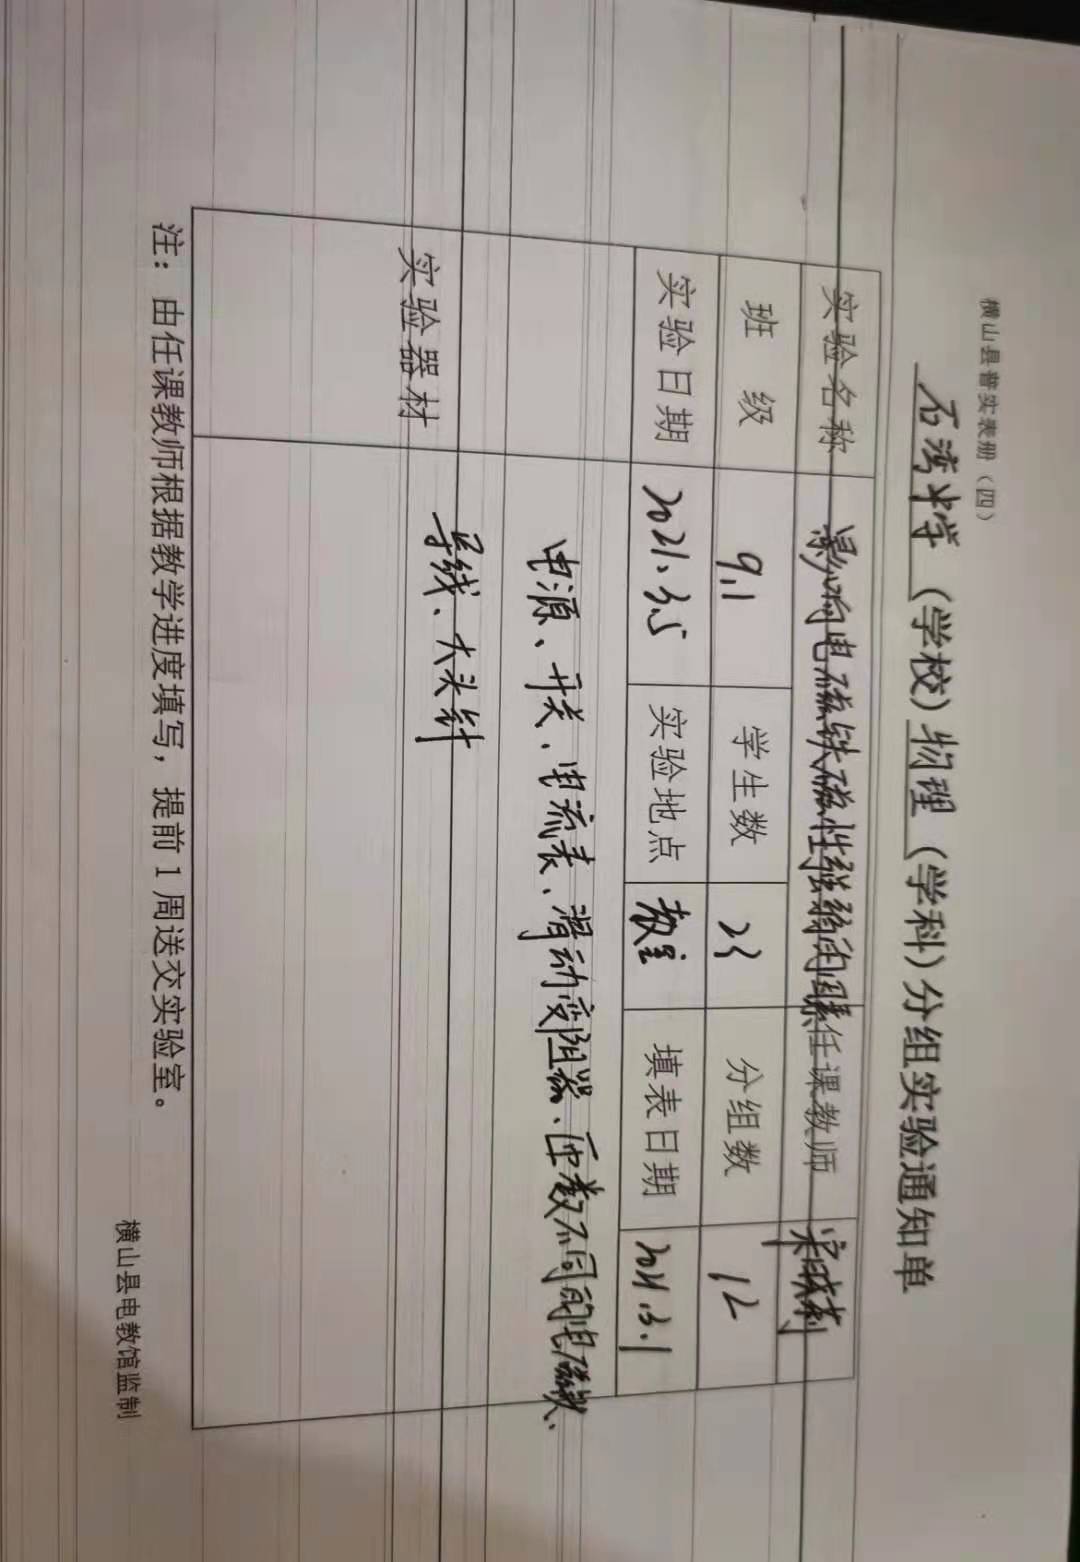 横山县普实表册（四）
石湾中学（学校）物理（学科）分组实验通知单
实验名称 影响电磁铁磁性强弱的因素 任课教师
班 级 9.1 学生数 23 分组数 12
实验日期 2021.3.5 实验地点 教室 填表日期 2021.3.1
实验器材 电源、开关、电流表、滑动变阻器、匝数不同的电磁铁、
导线、大头针
注：由任课教师根据教学进度填写，提前1周送交实验室。
横山县电教馆监制